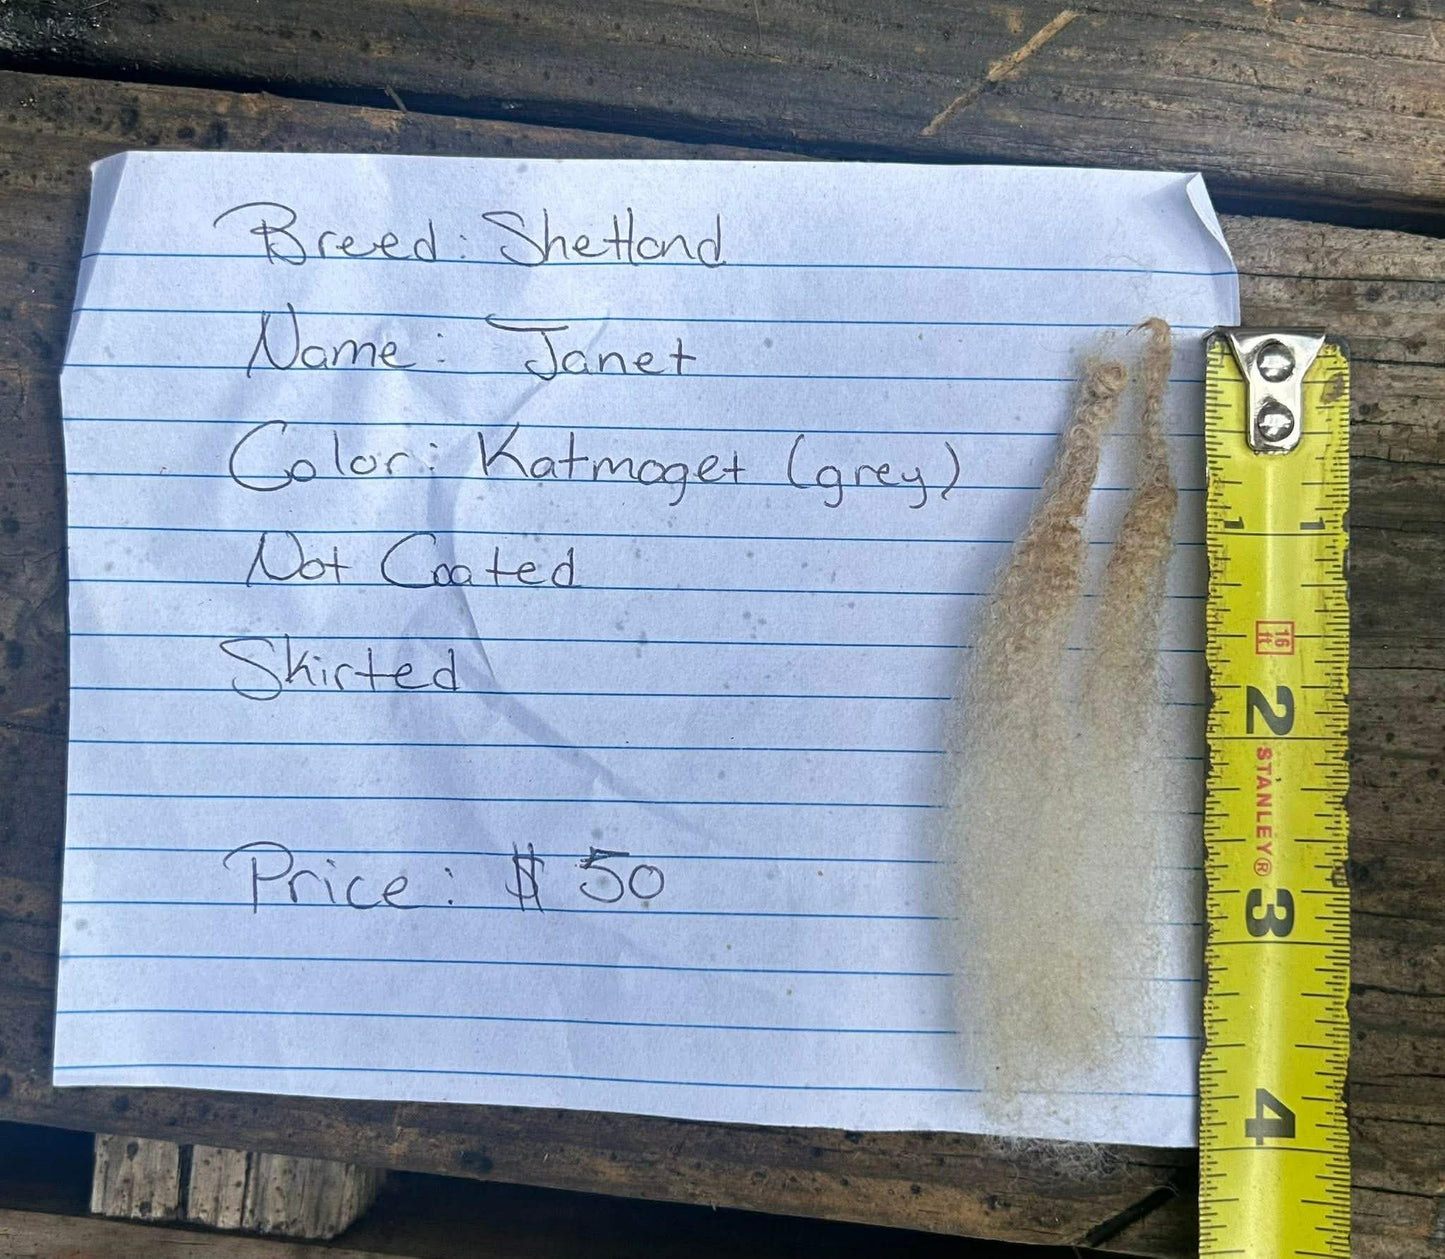 Breed: Shetland
Name: Janet
Color: Katmoget (grey)
Not Coated
Skirted
Price: $ 50
1 1
16 ft
2
STANLEY®
3
4